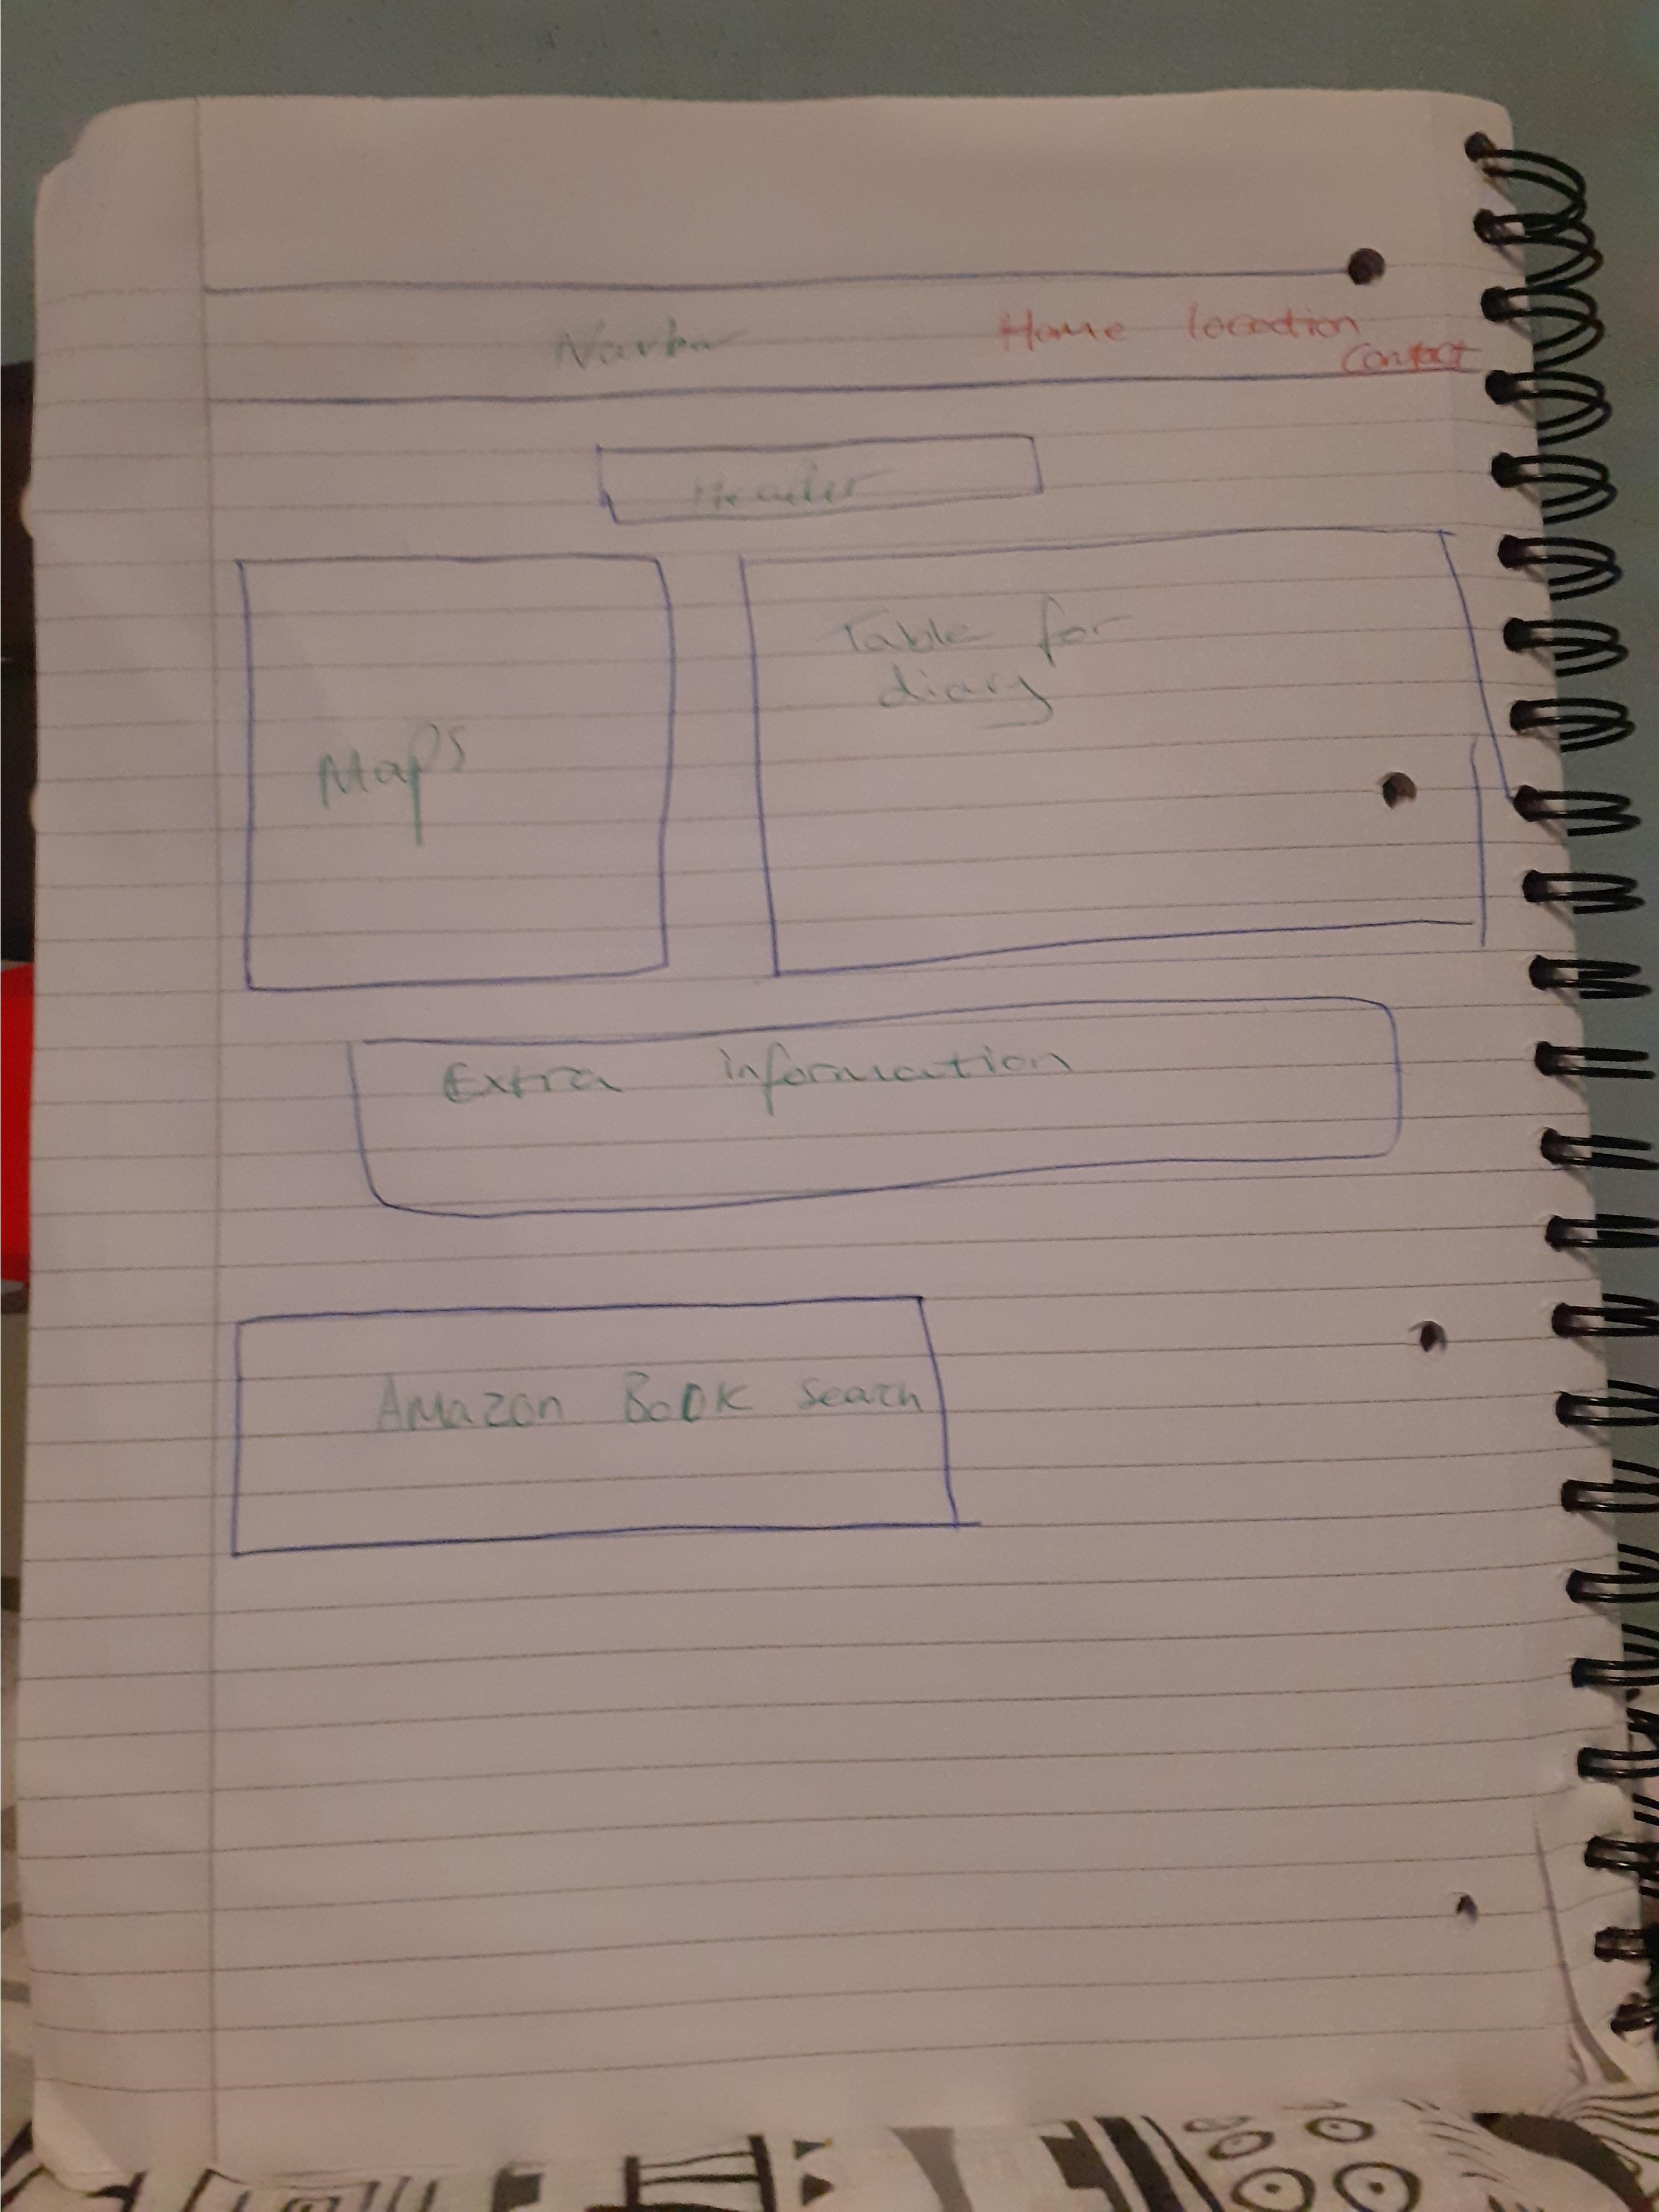 Navbar Home location
Contact
Header
Table for
diary
Maps
Extra information
Amazon Book Search